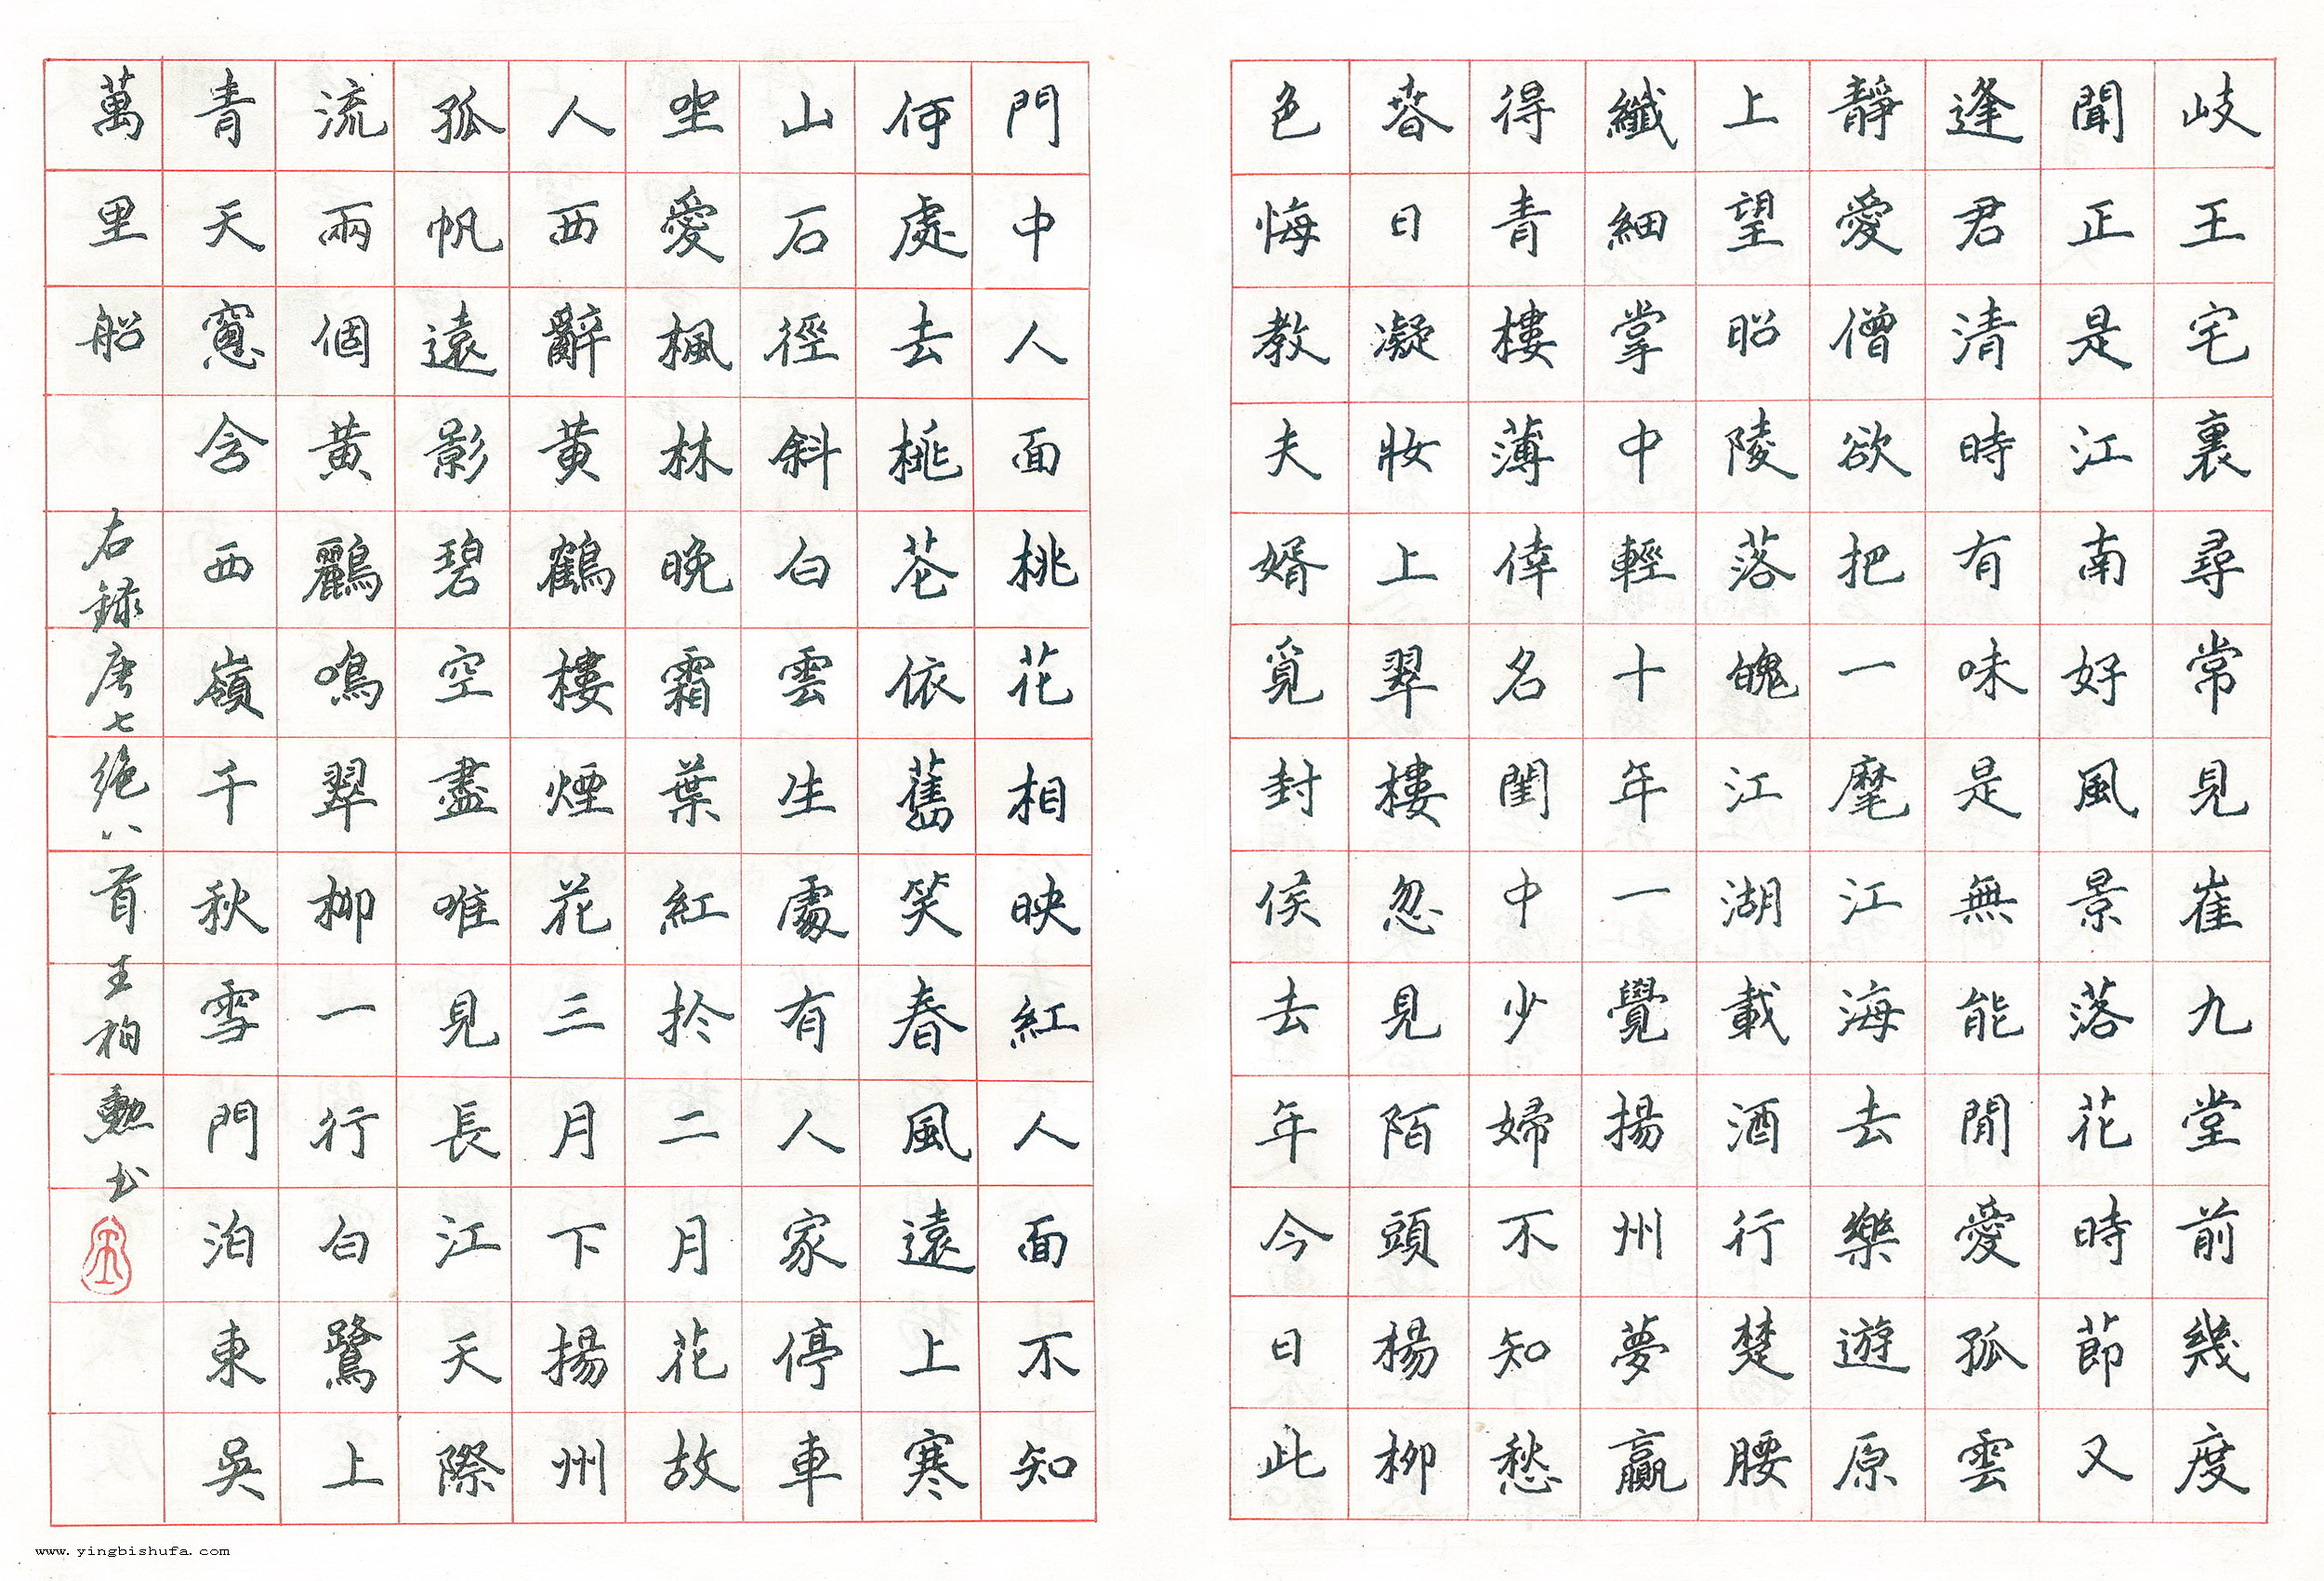 岐王宅裏尋常見崔九堂前幾度
聞正是江南好風景落花時節又
逢君清時有味是無能閒愛孤雲
靜愛僧欲把一麾江海去樂遊原
上望昭陵落魄江湖載酒行楚腰
纖細掌中輕十年一覺揚州夢贏
得青樓薄倖名閨中少婦不知愁
春日凝妝上翠樓忽見陌頭楊柳
色悔教夫婿覓封侯去年今日此
門中人面桃花相映紅人面不知
何處去桃花依舊笑春風遠上寒
山石徑斜白雲生處有人家停車
坐愛楓林晚霜葉紅於二月花故
人西辭黃鶴樓煙花三月下揚州
孤帆遠影碧空盡唯見長江天際
流兩個黃鸝鳴翠柳一行白鷺上
青天窻含西嶺千秋雪門泊東吳
萬里船 右錄唐七絕八首王柏勳书
www.yingbishufa.com